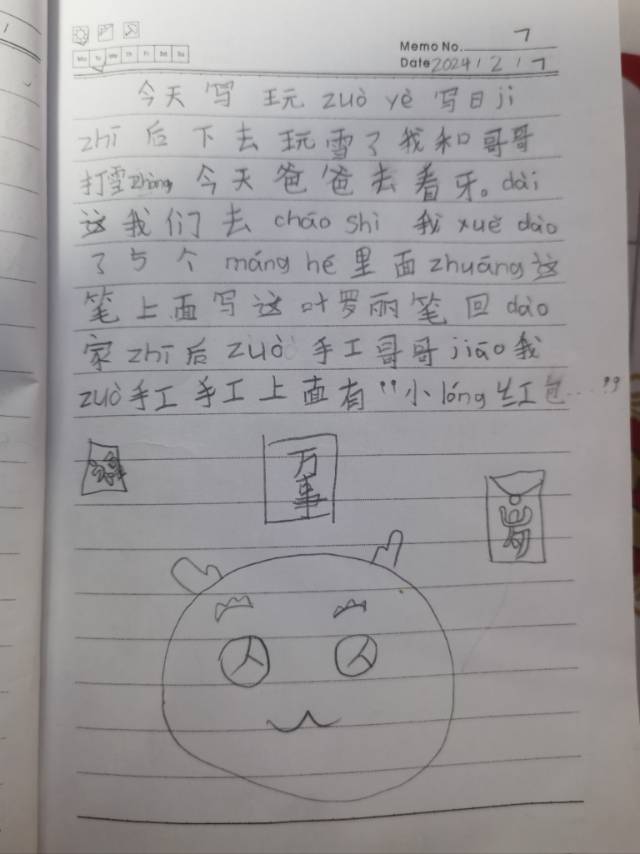 Memo No. 7
Date 2024 / 2 / 7
今天写玩zuò yè写日jì
zhī后下去玩雪了我和哥哥
打雪zhàng今天爸爸去看牙。dài
这我们去chāo shì我xuě dào
了5个máng hé里面zhuāng这
笔上面写这叶罗丽笔回dào
家zhī后zuò手工哥哥jiāo我
zuò手工手工上面有"小lóng红包……"
万事